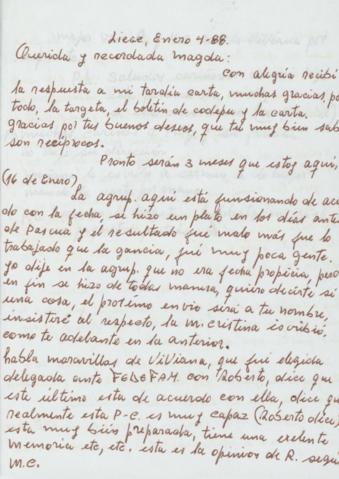 Liege, Enero 4-88.
Querida y recordada Magda:
con alegria recibí
la respuesta a mi taralía carta, muchas gracias, po
todo, la targeta, el boletin de codepu y la carta.
gracias por tus buenos deseos, que tu muy bien sab
son reciprocos.
Pronto serán 3 meses que estoy aqui,
(16 de Enero)
La agrup. aqui está funsionando de acu
do con la fecha, se hizo un plato en los días ante
de pascua y el resultado fué malo más fue lo
trabajado que la gancia, fué muy poca gente.
yo dije en la agrup. que no era fecha propicia, pero
en fin se hizo de todas manera, quiero decirte si
una cosa, el protésmo envio será a tu nombre,
insistiré al respecto, la m. cristina escribió,
como te adebante en la anterior.
habla maravillas de ViViana, que fué elegida
delegada ante FEDEFAM. con Roberto, dice que
este último esta de acuerdo con ella, dice que
realmente esta P-C. es muy capaz (Roberto dice)
esta muy bién preparada, tiene una exelente
memoria etc, etc. esta es la opinion de R. segú
M.C.